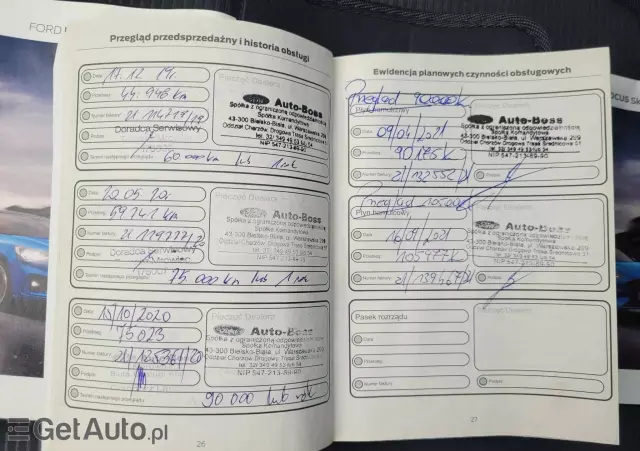 FORD
Przegląd przedsprzedażny i historia obsługi
Pieczęć Dealera
Data 17.12.19r.
Przebieg 44.996 km
Numer faktury
Podpis Doradca Serwisowy
Termin następnego przeglądu 60 000 km lub 1 rok
Auto-Boss
Spółka z ograniczoną odpowiedzialnością
Spółka Komandytowa
43-300 Bielsko-Biała, ul. Warszawska 209
Oddział Chorzów, Drogowa Trasa Średnicowa 51
tel. 32/ 349 49 53 lub 54
NIP 547-213-89-90
Pieczęć Dealera
Data 22.05.20r.
Przebieg 59741 km
Numer faktury
Podpis Doradca Serwisowy
75.000 km lub 1 rok
Auto-Boss
Spółka z ograniczoną odpowiedzialnością
Spółka Komandytowa
43-300 Bielsko-Biała, ul. Warszawska 209
Oddział Chorzów, Drogowa Trasa Średnicowa 51
tel. 32/ 349 49 53 lub 54
NIP 547-213-89-90
Pieczęć Dealera
Data 15/10/2020
Przebieg 75023
Numer faktury
Podpis
Termin następnego przeglądu 90 000 lub rok
Auto-Boss
Spółka z ograniczoną odpowiedzialnością
Spółka Komandytowa
43-300 Bielsko-Biała, ul. Warszawska 209
Oddział Chorzów Drogowa Trasa Średnicowa 51
tel. 32/ 349 49 53 lub 54
NIP 547-213-89-90
26
Ewidencja planowych czynności obsługowych
Przegląd 90000k
Płyn hamulcowy
Data 09/04/2021
Przebieg 90175k
Numer faktury
Podpis
Auto-Boss
Spółka z ograniczoną odpowiedzialnością
Spółka Komandytowa
43-300 Bielsko-Biała, ul. Warszawska 209
Oddział Chorzów Drogowa Trasa Średnicowa 51
tel. 32/ 349 49 53 lub 54
NIP 547-213-89-90
Przegląd 105000k
Płyn hamulcowy
Data 16/09/2021
Przebieg 105977k
Numer faktury
Podpis
Auto-Boss
Spółka z ograniczoną odpowiedzialnością
Spółka Komandytowa
43-300 Bielsko-Biała, ul. Warszawska 209
Oddział Chorzów Drogowa Trasa Średnicowa 51
tel. 32/ 349 49 53 lub 54
NIP 547-213-89-90
Pasek rozrządu
Pieczęć Dealera
Data
Przebieg
Numer faktury
Podpis
27
GetAuto.pl